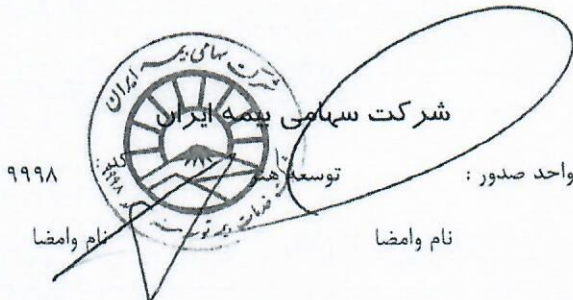 شرکت سهامی بیمه ایران
شرکت سهامی بیمه ایران
واحد صدور : توسعه هنر کد : ۹۹۹۸
نام وامضا نام وامضا